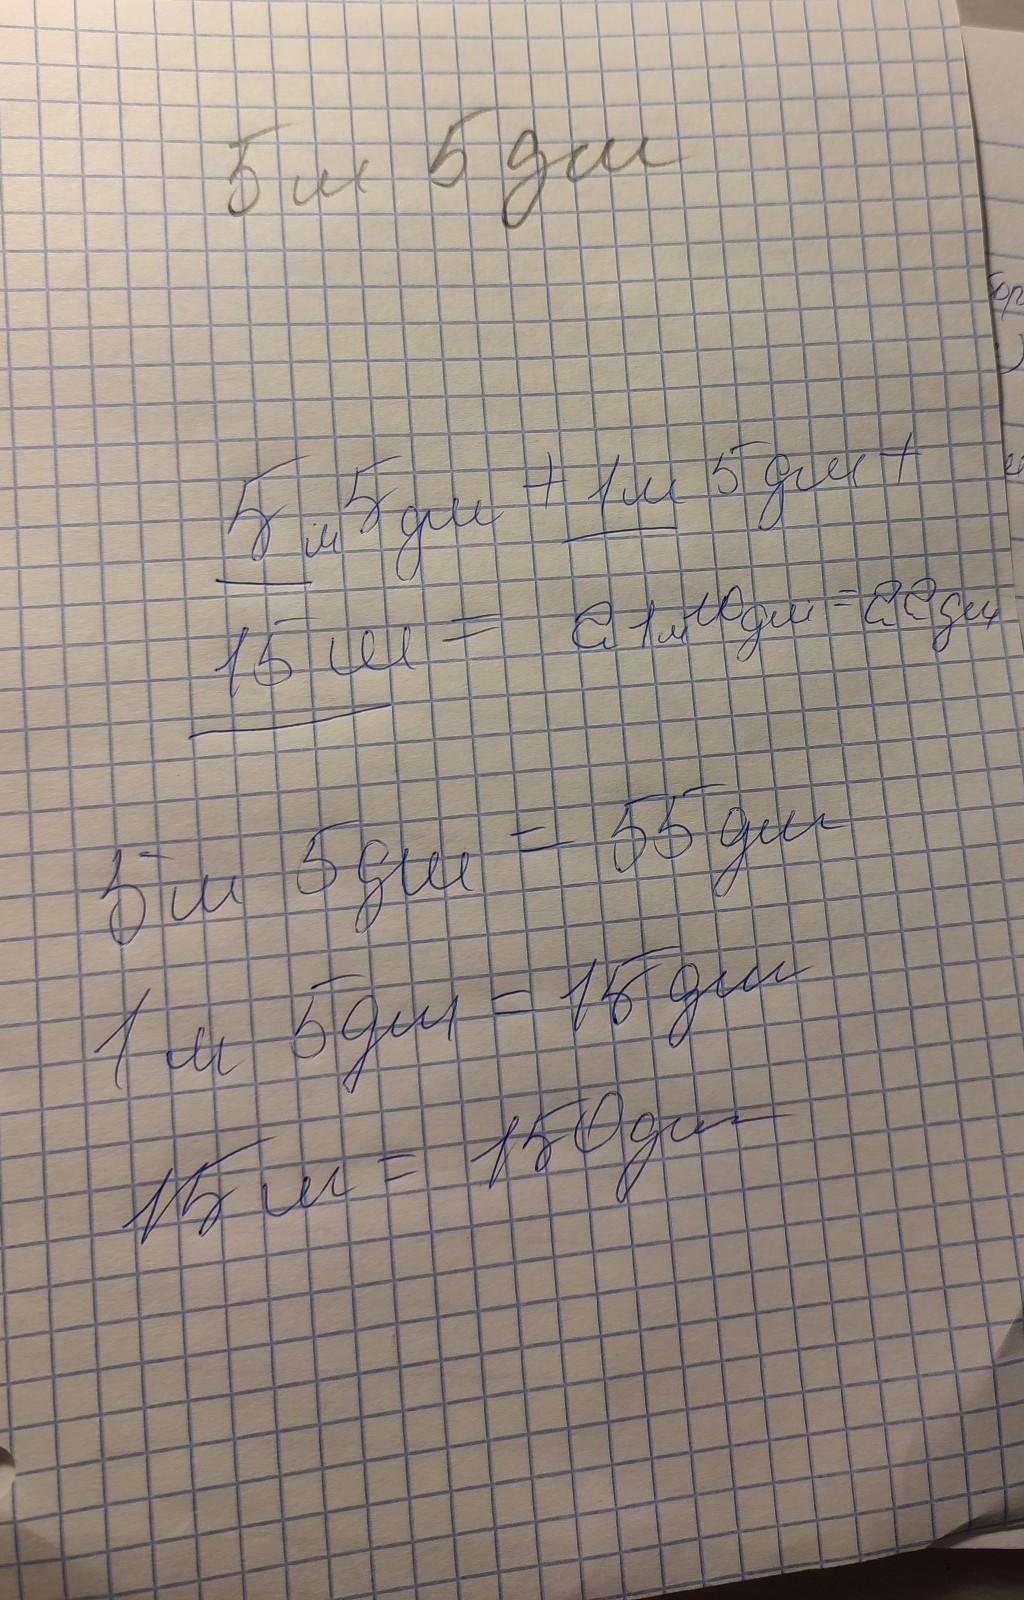 5м 5дм
5м 5дм + 1м 5дм +
15 м = 21м 10дм = 22дм
5м 5дм = 55дм
1м 5дм = 15дм
15м = 150дм